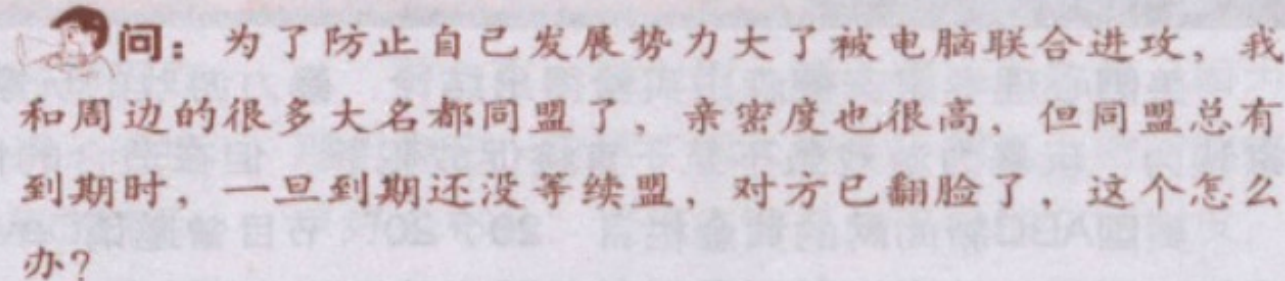 问：为了防止自己发展势力大了被电脑联合进攻，我
和周边的很多大名都同盟了，亲密度也很高，但同盟总有
到期时，一旦到期还没等续盟，对方已翻脸了，这个怎么
办？